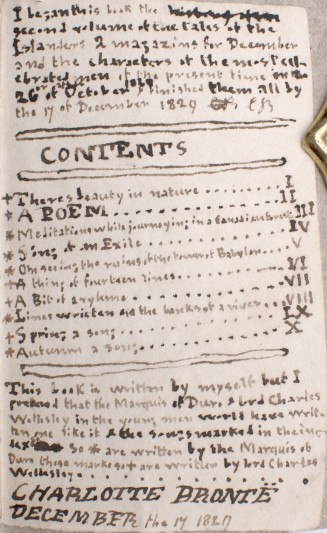 I began this book the
second volume of the tales of the
Islanders 2 magazins for December
and the characters of the most cel-
ebrated men of the present time on the
26 of October 1829 & finished them all by
the 17 of December 1829 CB
CONTENTS
+ Theres beauty in nature I
* A POEM II
* Meditations while journeying in a Canadian forest III
* Song of an Exile IV
* On seeing the ruins of the tower of Babylon V
+ A thing of fourteen lines VI
+ A Bit of a rhyme VII
* Lines written on the banks of a river VIII
+ Spring a song IX
* Autumn a song X
This book is written by myself but I
pretend that the Marquis of Duro & Lord Charles
Wellesley in the young men world have writt
en one like it & the songs marked in the in
dex so * are written by the Marquis of
Duro those marked so + are written by lord Charles
Wellesley
CHARLOTTE BRONTË
DECEMBER the 17 1829